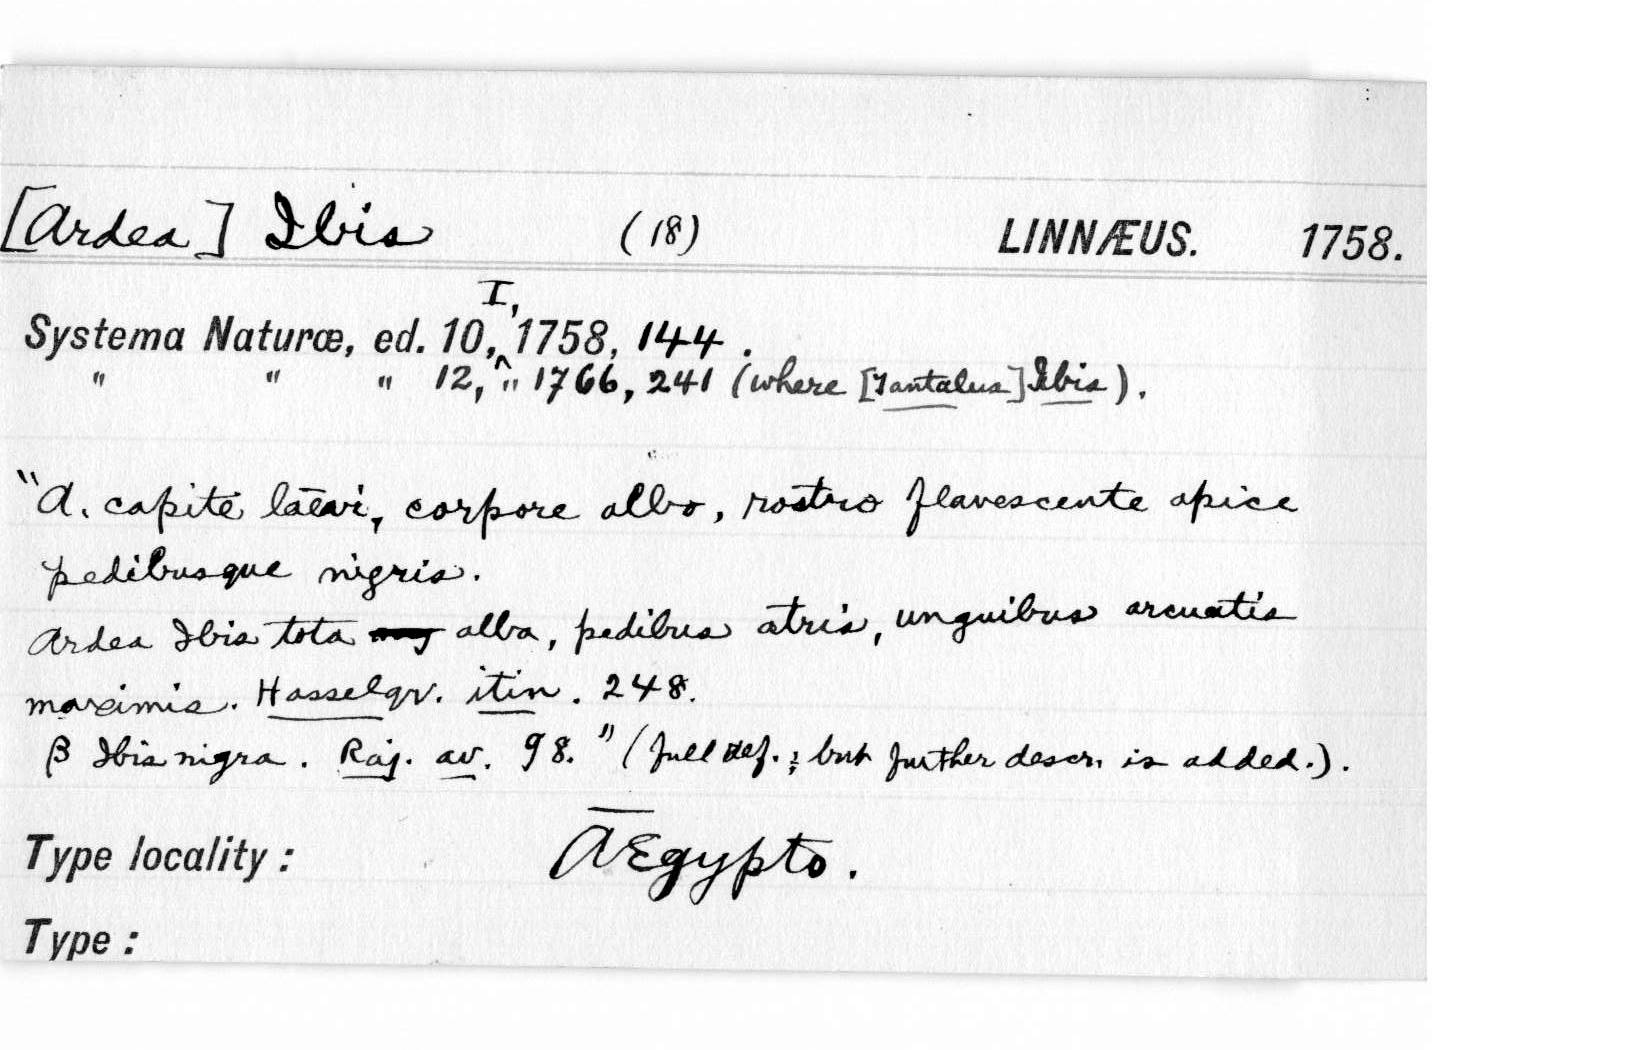 [Ardea] Ibis (18) LINNÆUS. 1758.
I,
Systema Naturæ, ed. 10, ^ 1758, 144.
" " " 12, " 1766, 241 (where [Tantalus] Ibis).
"A. capite læavi, corpore albo, rostro flavescente apice
pedibusque nigris.
Ardea Ibis tota alba, pedibus atris, unguibus arcuatis
maximis. Hasselqv. itin. 248.
β Ibis nigra. Raj. av. 98." (full def.; but further descr. is added.).
Type locality: Ægypto.
Type: